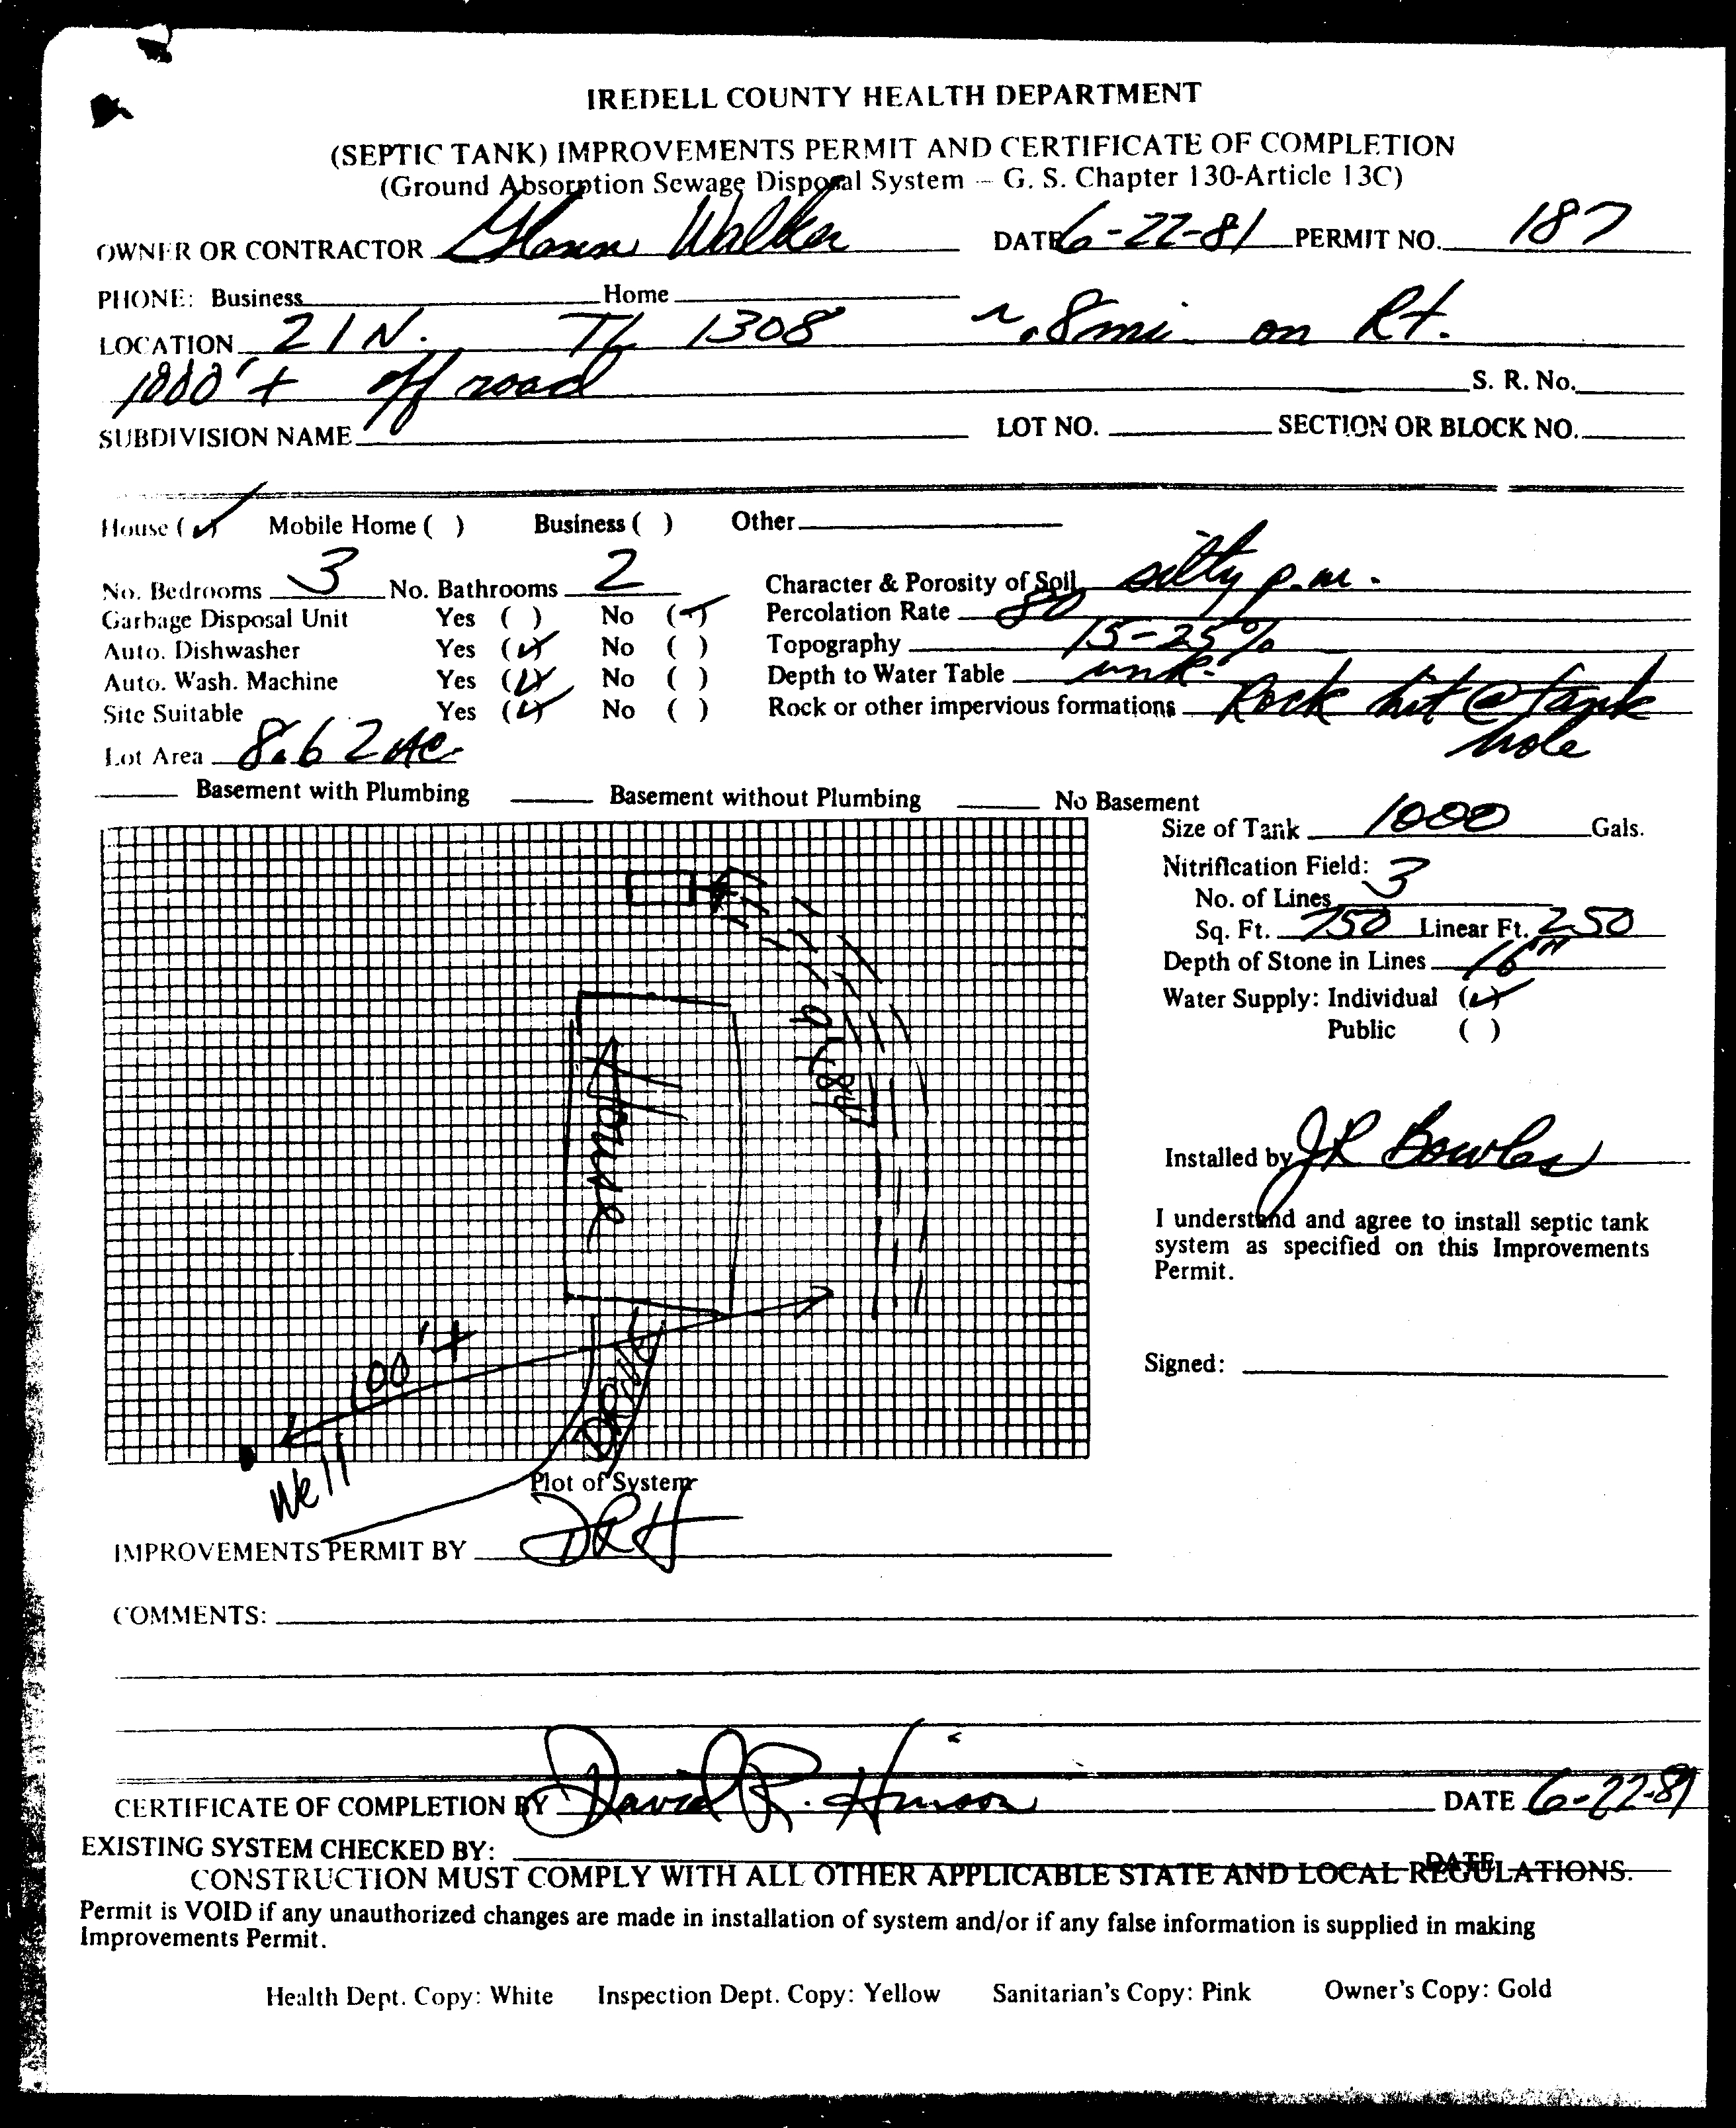 IREDELL COUNTY HEALTH DEPARTMENT
(SEPTIC TANK) IMPROVEMENTS PERMIT AND CERTIFICATE OF COMPLETION
(Ground Absorption Sewage Disposal System – G. S. Chapter 130-Article 13C)
OWNER OR CONTRACTOR Glenn Walker DATE 6-22-81 PERMIT NO. 187
PHONE: Business Home
LOCATION 21 N. TL 1308 ~.8 mi on Rt.
1000'+ off road S. R. No.
SUBDIVISION NAME LOT NO. SECTION OR BLOCK NO.
House (✓) Mobile Home ( ) Business ( ) Other
No. Bedrooms 3 No. Bathrooms 2 Character & Porosity of Soil silty p.m.
Garbage Disposal Unit Yes ( ) No (✓) Percolation Rate 80
Auto. Dishwasher Yes (✓) No ( ) Topography 15-25%
Auto. Wash. Machine Yes (✓) No ( ) Depth to Water Table unk.
Site Suitable Yes (✓) No ( ) Rock or other impervious formations Rock hit @ tank
hole
Lot Area 8.62 AC
Basement with Plumbing Basement without Plumbing No Basement
Size of Tank 1000 Gals.
Nitrification Field:
No. of Lines 3
Sq. Ft. 750 Linear Ft. 250
Depth of Stone in Lines 16"
Water Supply: Individual (✓)
Public ( )
House
Installed by JR Bowles
I understand and agree to install septic tank
system as specified on this Improvements
Permit.
100'+
Drive
Signed:
Well
Plot of System
IMPROVEMENTS PERMIT BY DRH
COMMENTS:
CERTIFICATE OF COMPLETION BY David R. Hinson DATE 6-22-81
EXISTING SYSTEM CHECKED BY: DATE
CONSTRUCTION MUST COMPLY WITH ALL OTHER APPLICABLE STATE AND LOCAL REGULATIONS.
Permit is VOID if any unauthorized changes are made in installation of system and/or if any false information is supplied in making
Improvements Permit.
Health Dept. Copy: White Inspection Dept. Copy: Yellow Sanitarian's Copy: Pink Owner's Copy: Gold